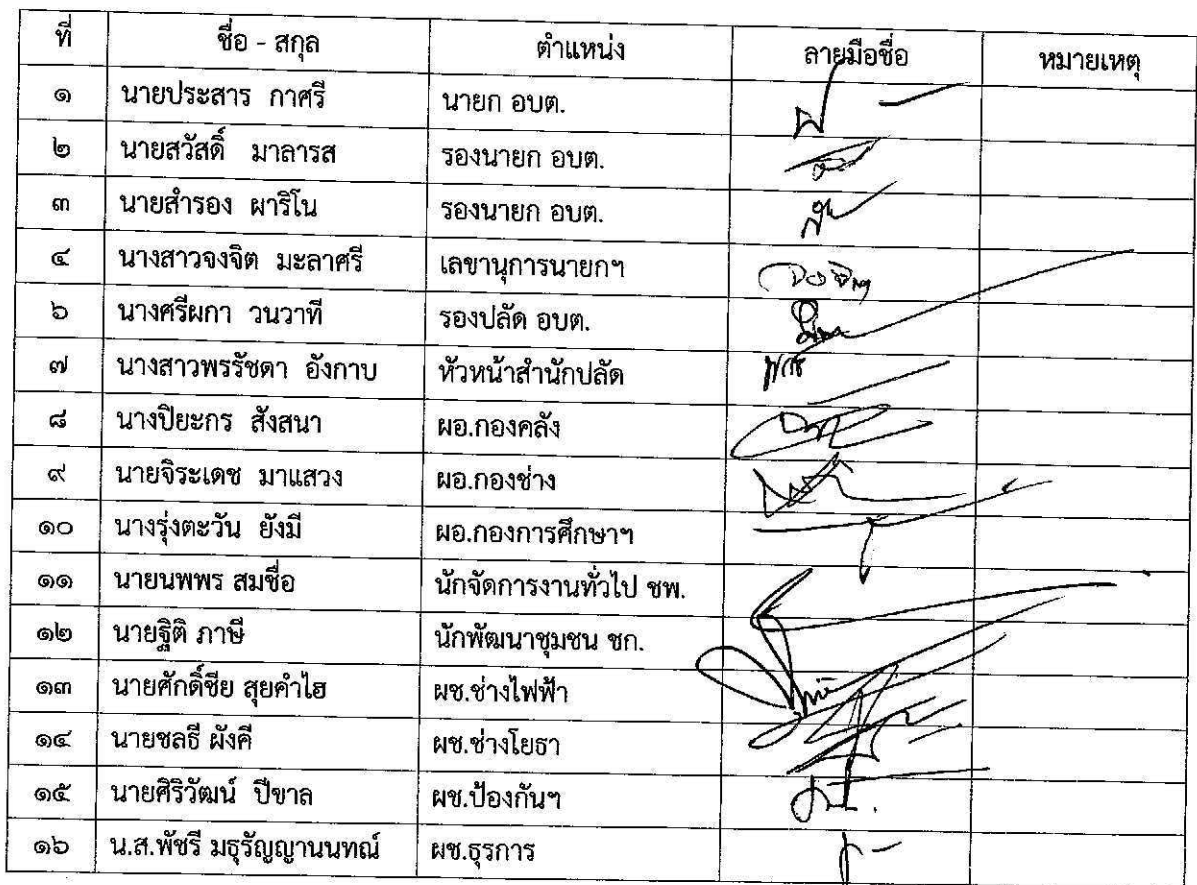 ที่ ชื่อ - สกุล ตำแหน่ง ลายมือชื่อ หมายเหตุ
๑ นายประสาร กาศรี นายก อบต.
๒ นายสวัสดิ์ มาลารส รองนายก อบต.
๓ นายสำรอง ผาริโน รองนายก อบต.
๔ นางสาวจงจิต มะลาศรี เลขานุการนายกฯ จงจิต
๖ นางศรีผกา วนวาที รองปลัด อบต.
๗ นางสาวพรรัชดา อังกาบ หัวหน้าสำนักปลัด
๘ นางปิยะกร สังสนา ผอ.กองคลัง
๙ นายจิระเดช มาแสวง ผอ.กองช่าง
๑๐ นางรุ่งตะวัน ยังมี ผอ.กองการศึกษาฯ
๑๑ นายนพพร สมชื่อ นักจัดการงานทั่วไป ชพ.
๑๒ นายฐิติ ภาษี นักพัฒนาชุมชน ชก.
๑๓ นายศักดิ์ชีย สุยคำไฮ ผช.ช่างไฟฟ้า
๑๔ นายชลธี ผังคี ผช.ช่างโยธา
๑๕ นายศิริวัฒน์ ปีขาล ผช.ป้องกันฯ
๑๖ น.ส.พัชรี มธุรัญญานนทณ์ ผช.ธุรการ